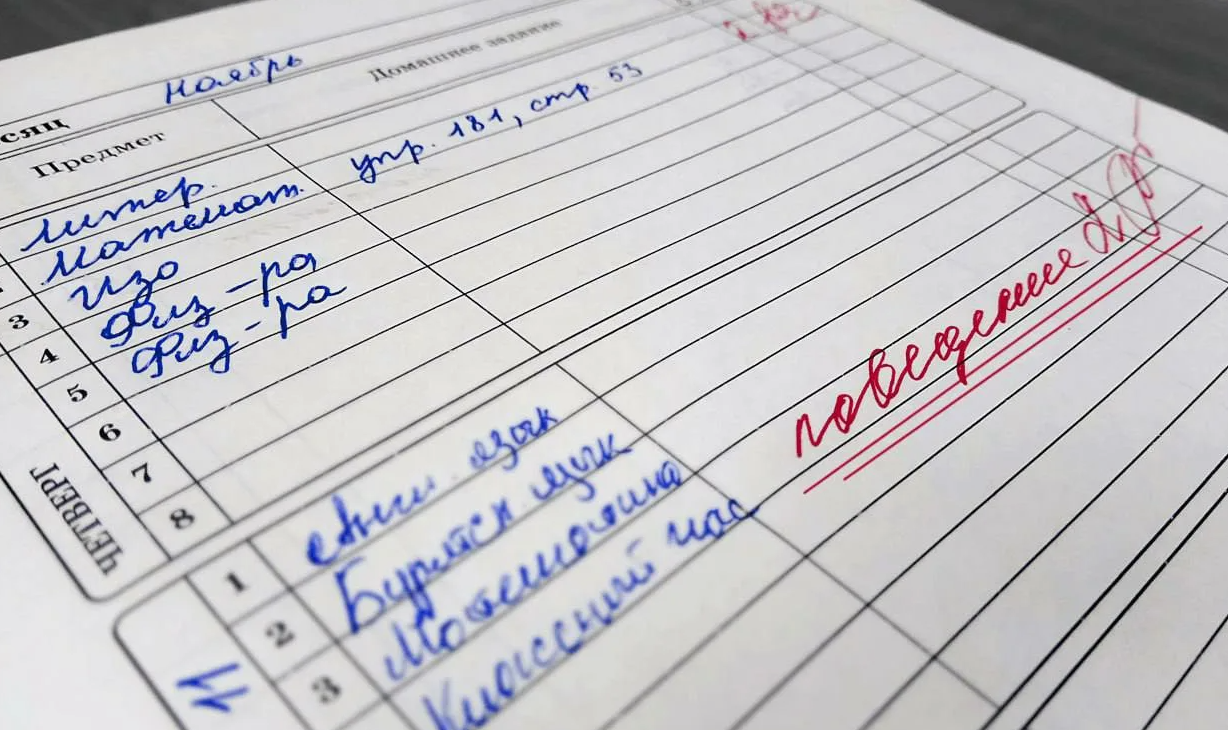 сяц Ноябрь
Предмет Домашнее задание
литер.
3 математ. упр. 181, стр. 53
4 Изо
5 Физ-ра
6 Физ-ра
7
8
ЧЕТВЕРГ
1 Англ. язык
2 Бурятск язык
3 Математика
Классный час
11
поведение